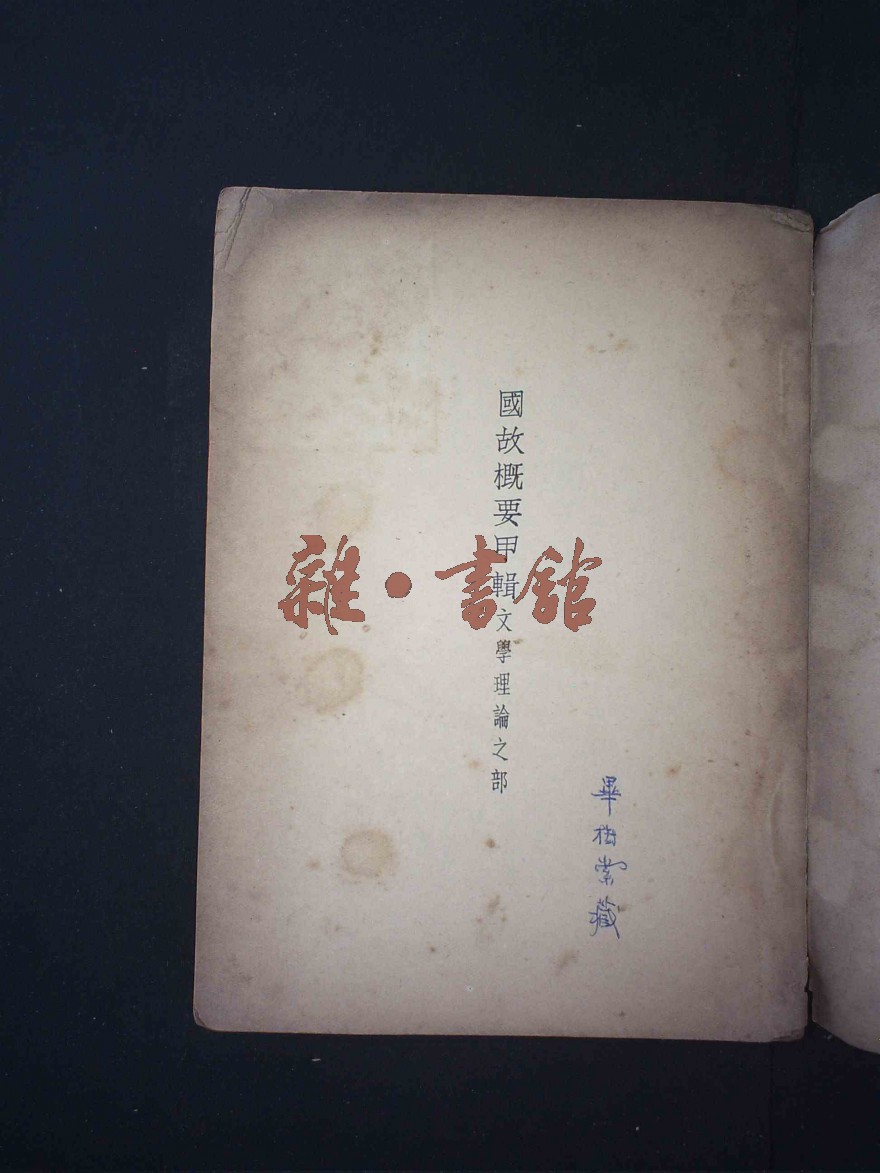 國故概要甲輯文學理論之部
雜·書館
畢樹棠藏